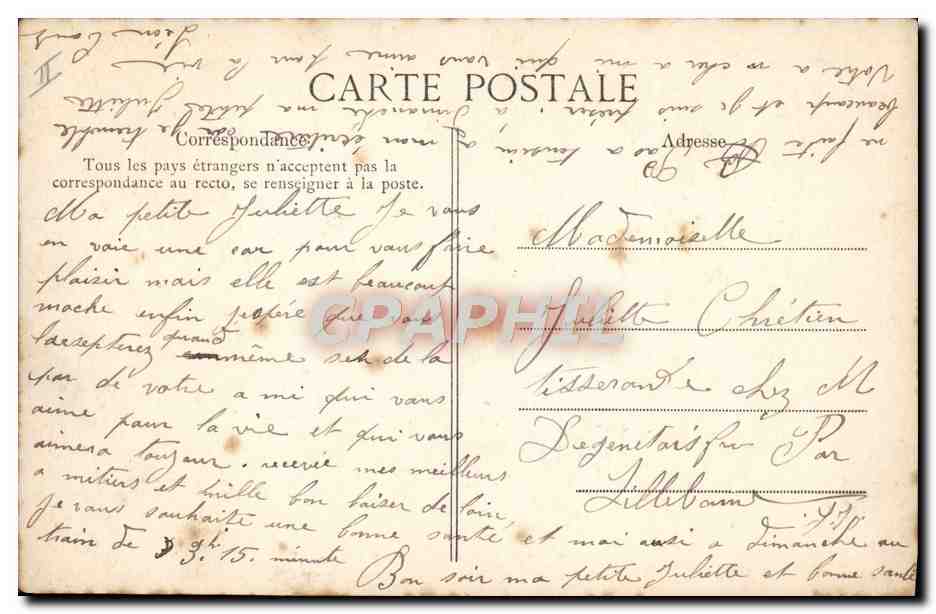 CARTE POSTALE
Correspondance
Tous les pays étrangers n'acceptent pas la
correspondance au recto, se renseigner à la poste.
Adresse
Ma petite Juliette Je vous
en voie une car pour vous faire
plaisir mais elle est beaucoup
moche enfin jespére que vous
lasepterez quand même seh de la
par de votre a mi qui vous
aime pour la vie et qui vous
aimera toujour. recevé mes meilleurs
a mitiers et mille bon baiser de loin,
Je vous souhaite une bonne santé et moi ausi a dimanche au
train de 9h. 15. minute
Bon soir ma petite Juliette et bonne santé
Mademoiselle
Juliette Chrétien
tisserande chez M
Degenétais fre Par
Lillebonne
S.I.
ne faite pas a tension a mon écriture car Je tremble
beaucoup et Je suis présé. a Dimanche ma petites Juliette
Votre a mi cher a mi qui vous aime pour la vie
Léon
II
CPAPHIL